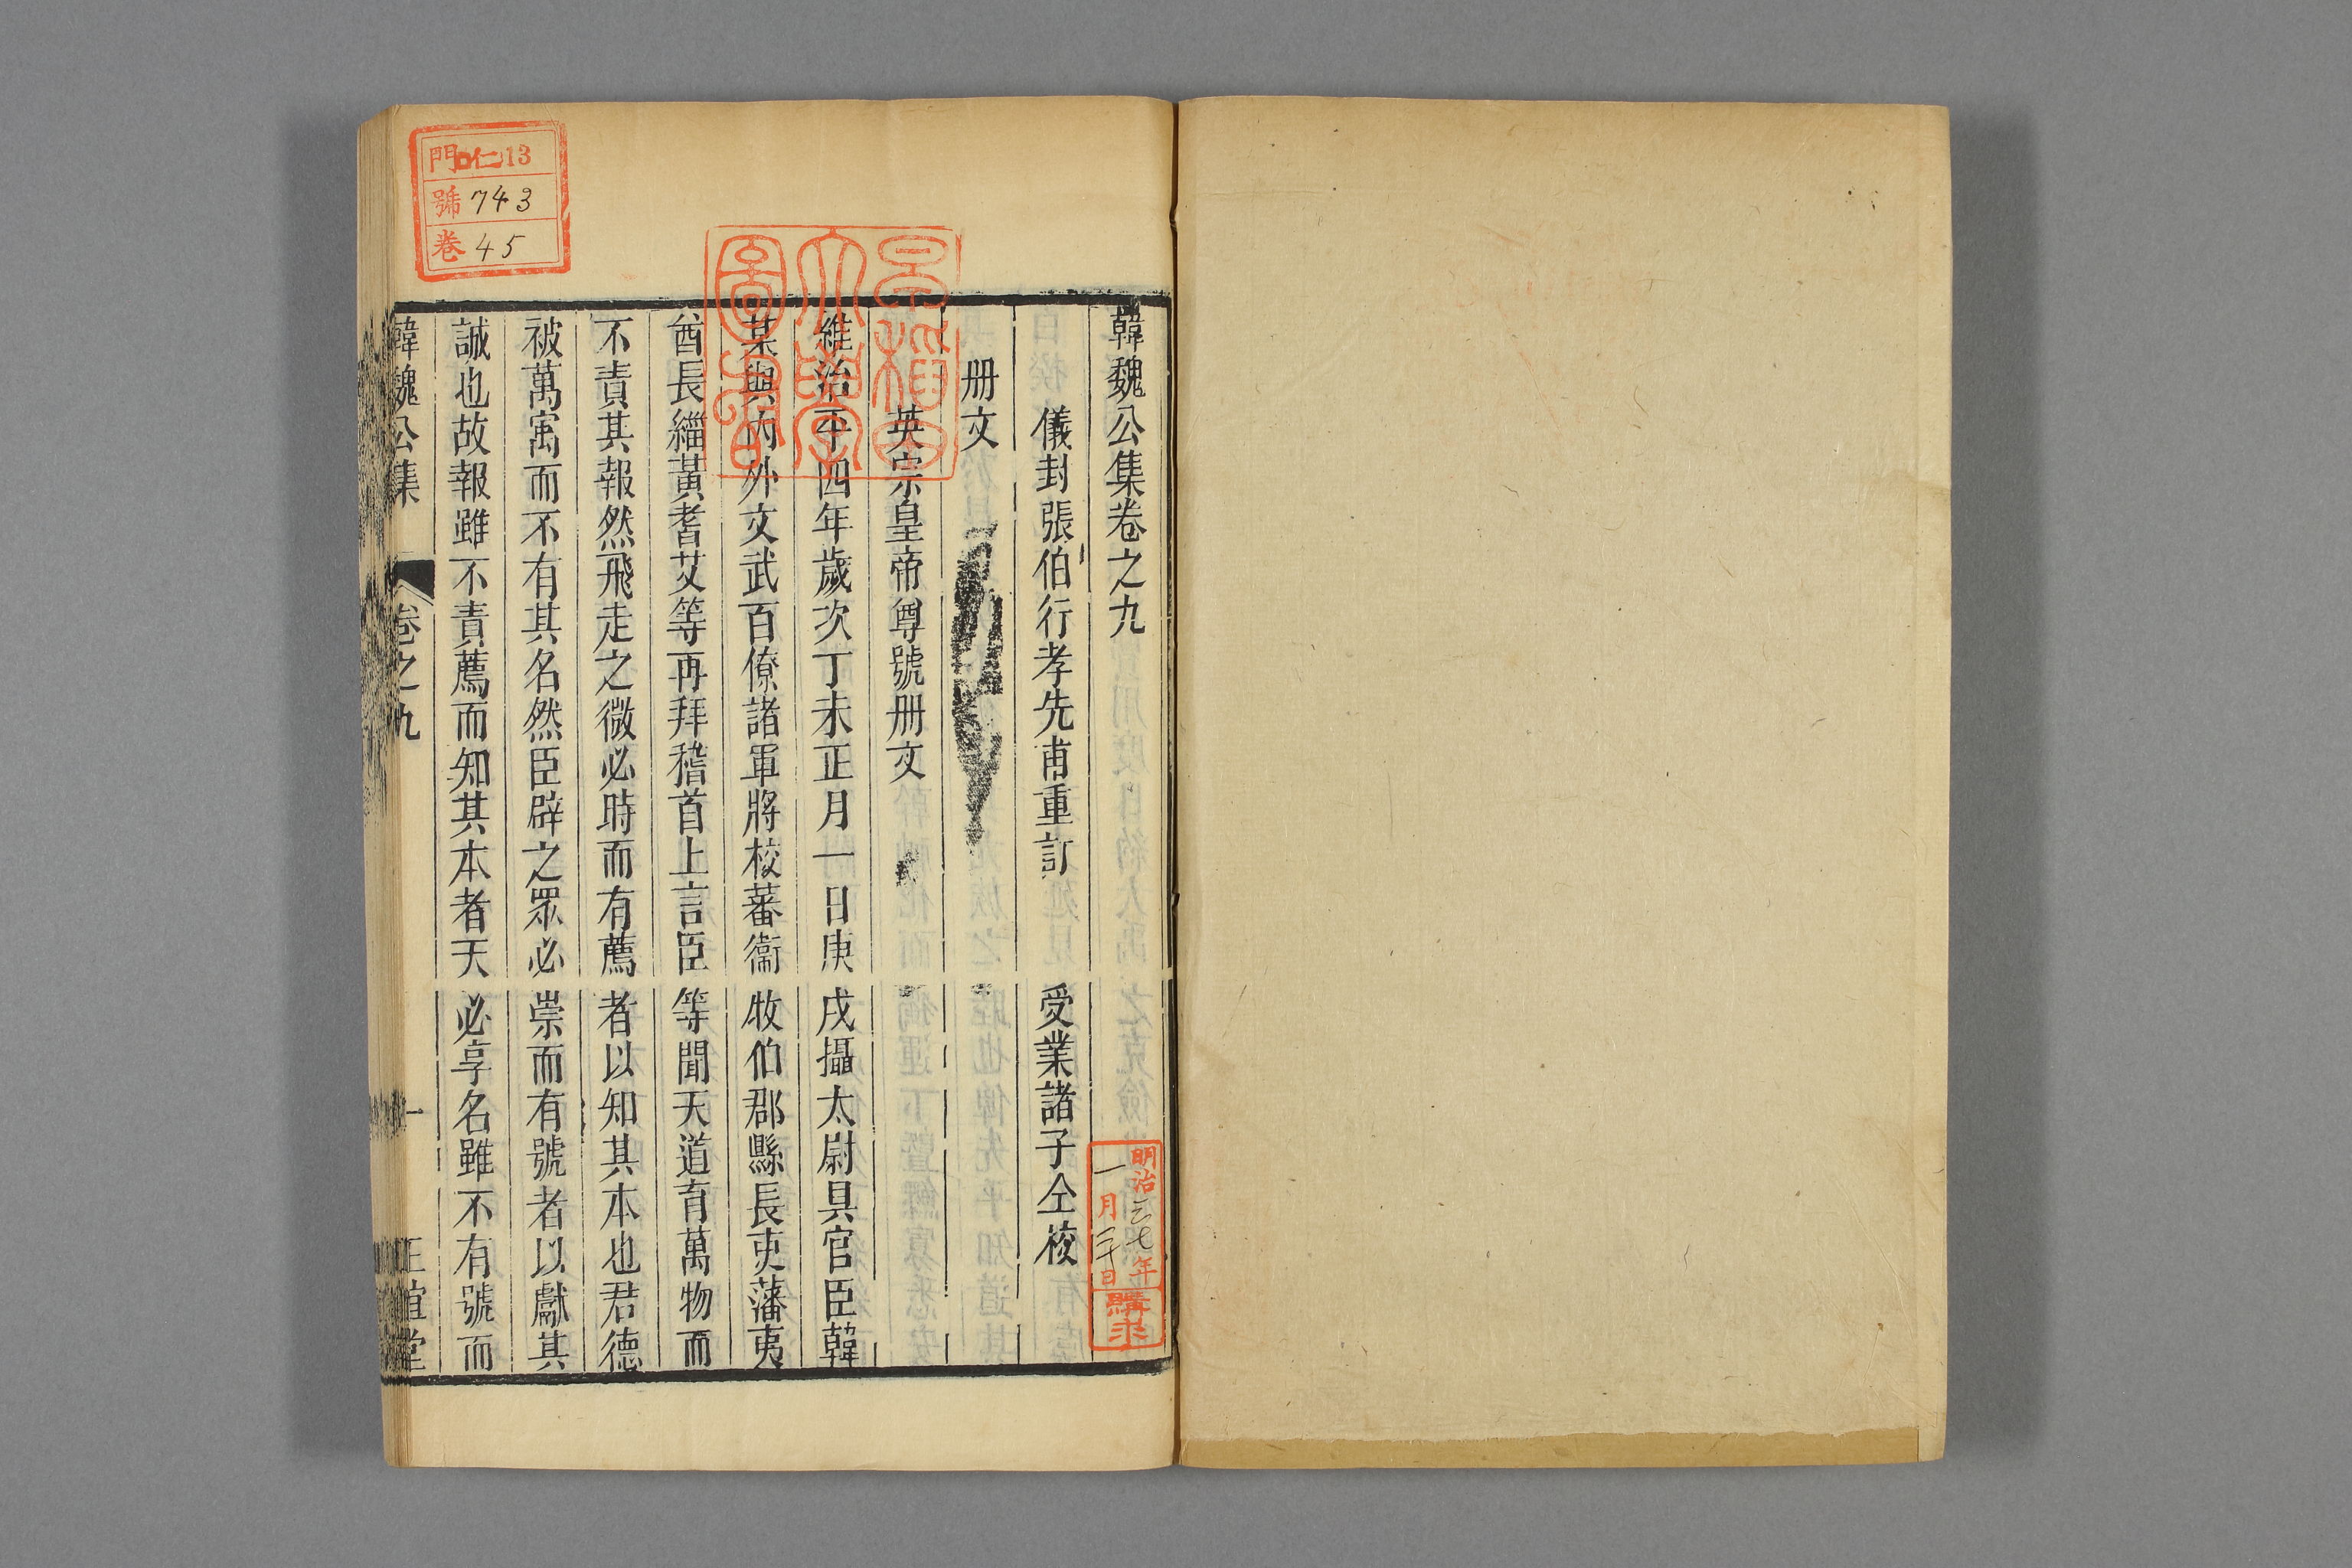 韓魏公集卷之九
儀封張伯行孝先甫重訂 受業諸子仝校
册文
英宗皇帝尊號册文
維治平四年歲次丁未正月一日庚戌攝太尉具官臣韓
某與內外文武百僚諸軍將校蕃衞牧伯郡縣長吏藩夷
酋長緇黃耆艾等再拜稽首上言臣等聞天道育萬物而
不責其報然飛走之微必時而有薦者以知其本也君德
被萬寓而不有其名然臣辟之眾必崇而有號者以獻其
誠也故報雖不責薦而知其本者天必享名雖不有號而
韓魏公集 卷之九 一 正誼堂
門 仁 13
號 743
卷 45
早稻田大學圖書
明治三七年
一月三十日
購求